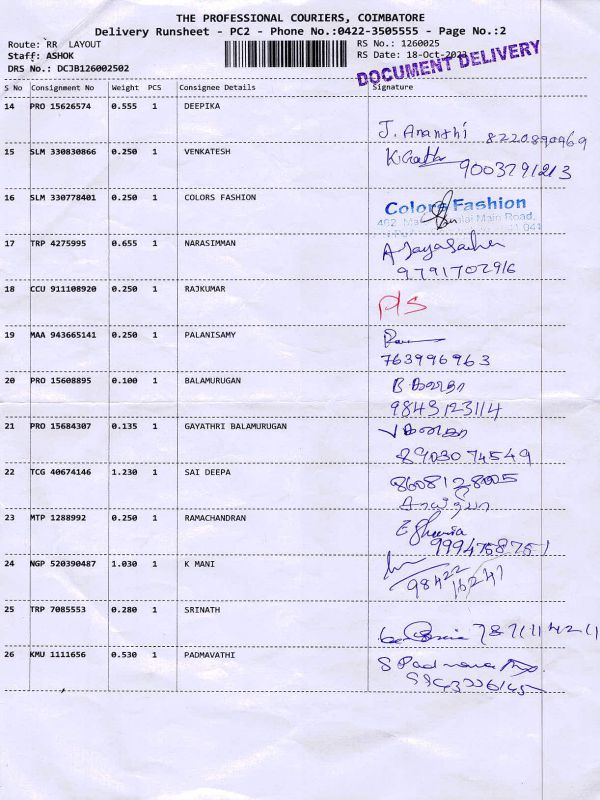 THE PROFESSIONAL COURIERS, COIMBATORE
Delivery Runsheet - PC2 - Phone No.:0422-3505555 - Page No.:2
Route: RR LAYOUT
RS No.: 1260025
Staff: ASHOK
RS Date: 18-Oct-2023
DRS No.: DCJB126002502
DOCUMENT DELIVERY
S No Consignment No Weight PCS Consignee Details Signature
14 PRO 15626574 0.555 1 DEEPIKA
J. Ananthi 8220890969
15 SLM 330830866 0.250 1 VENKATESH
9003791213
16 SLM 330778401 0.250 1 COLORS FASHION
Colors Fashion
Main Road,
17 TRP 4275995 0.655 1 NARASIMMAN
9791702916
18 CCU 911108920 0.250 1 RAJKUMAR
19 MAA 943665141 0.250 1 PALANISAMY
763996963
20 PRO 15608895 0.100 1 BALAMURUGAN
9843123114
21 PRO 15684307 0.135 1 GAYATHRI BALAMURUGAN
8903074549
22 TCG 40674146 1.230 1 SAI DEEPA
8608128005
23 MTP 1288992 0.250 1 RAMACHANDRAN
9994758751
24 NGP 520390487 1.030 1 K MANI
98422
16247
25 TRP 7085553 0.280 1 SRINATH
26 KMU 1111656 0.530 1 PADMAVATHI